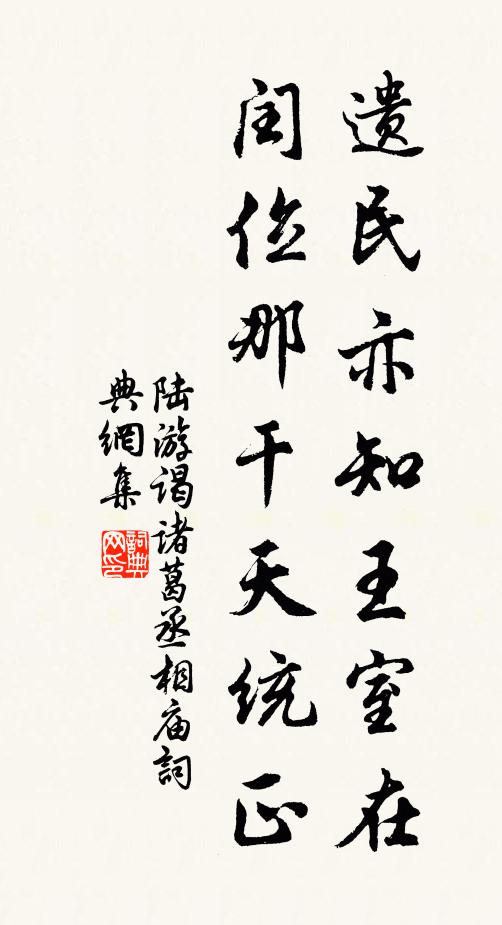 遗民亦知王室在
闰位那干天统正
陆游谒诸葛丞相庙詞
典網集
詞典网印